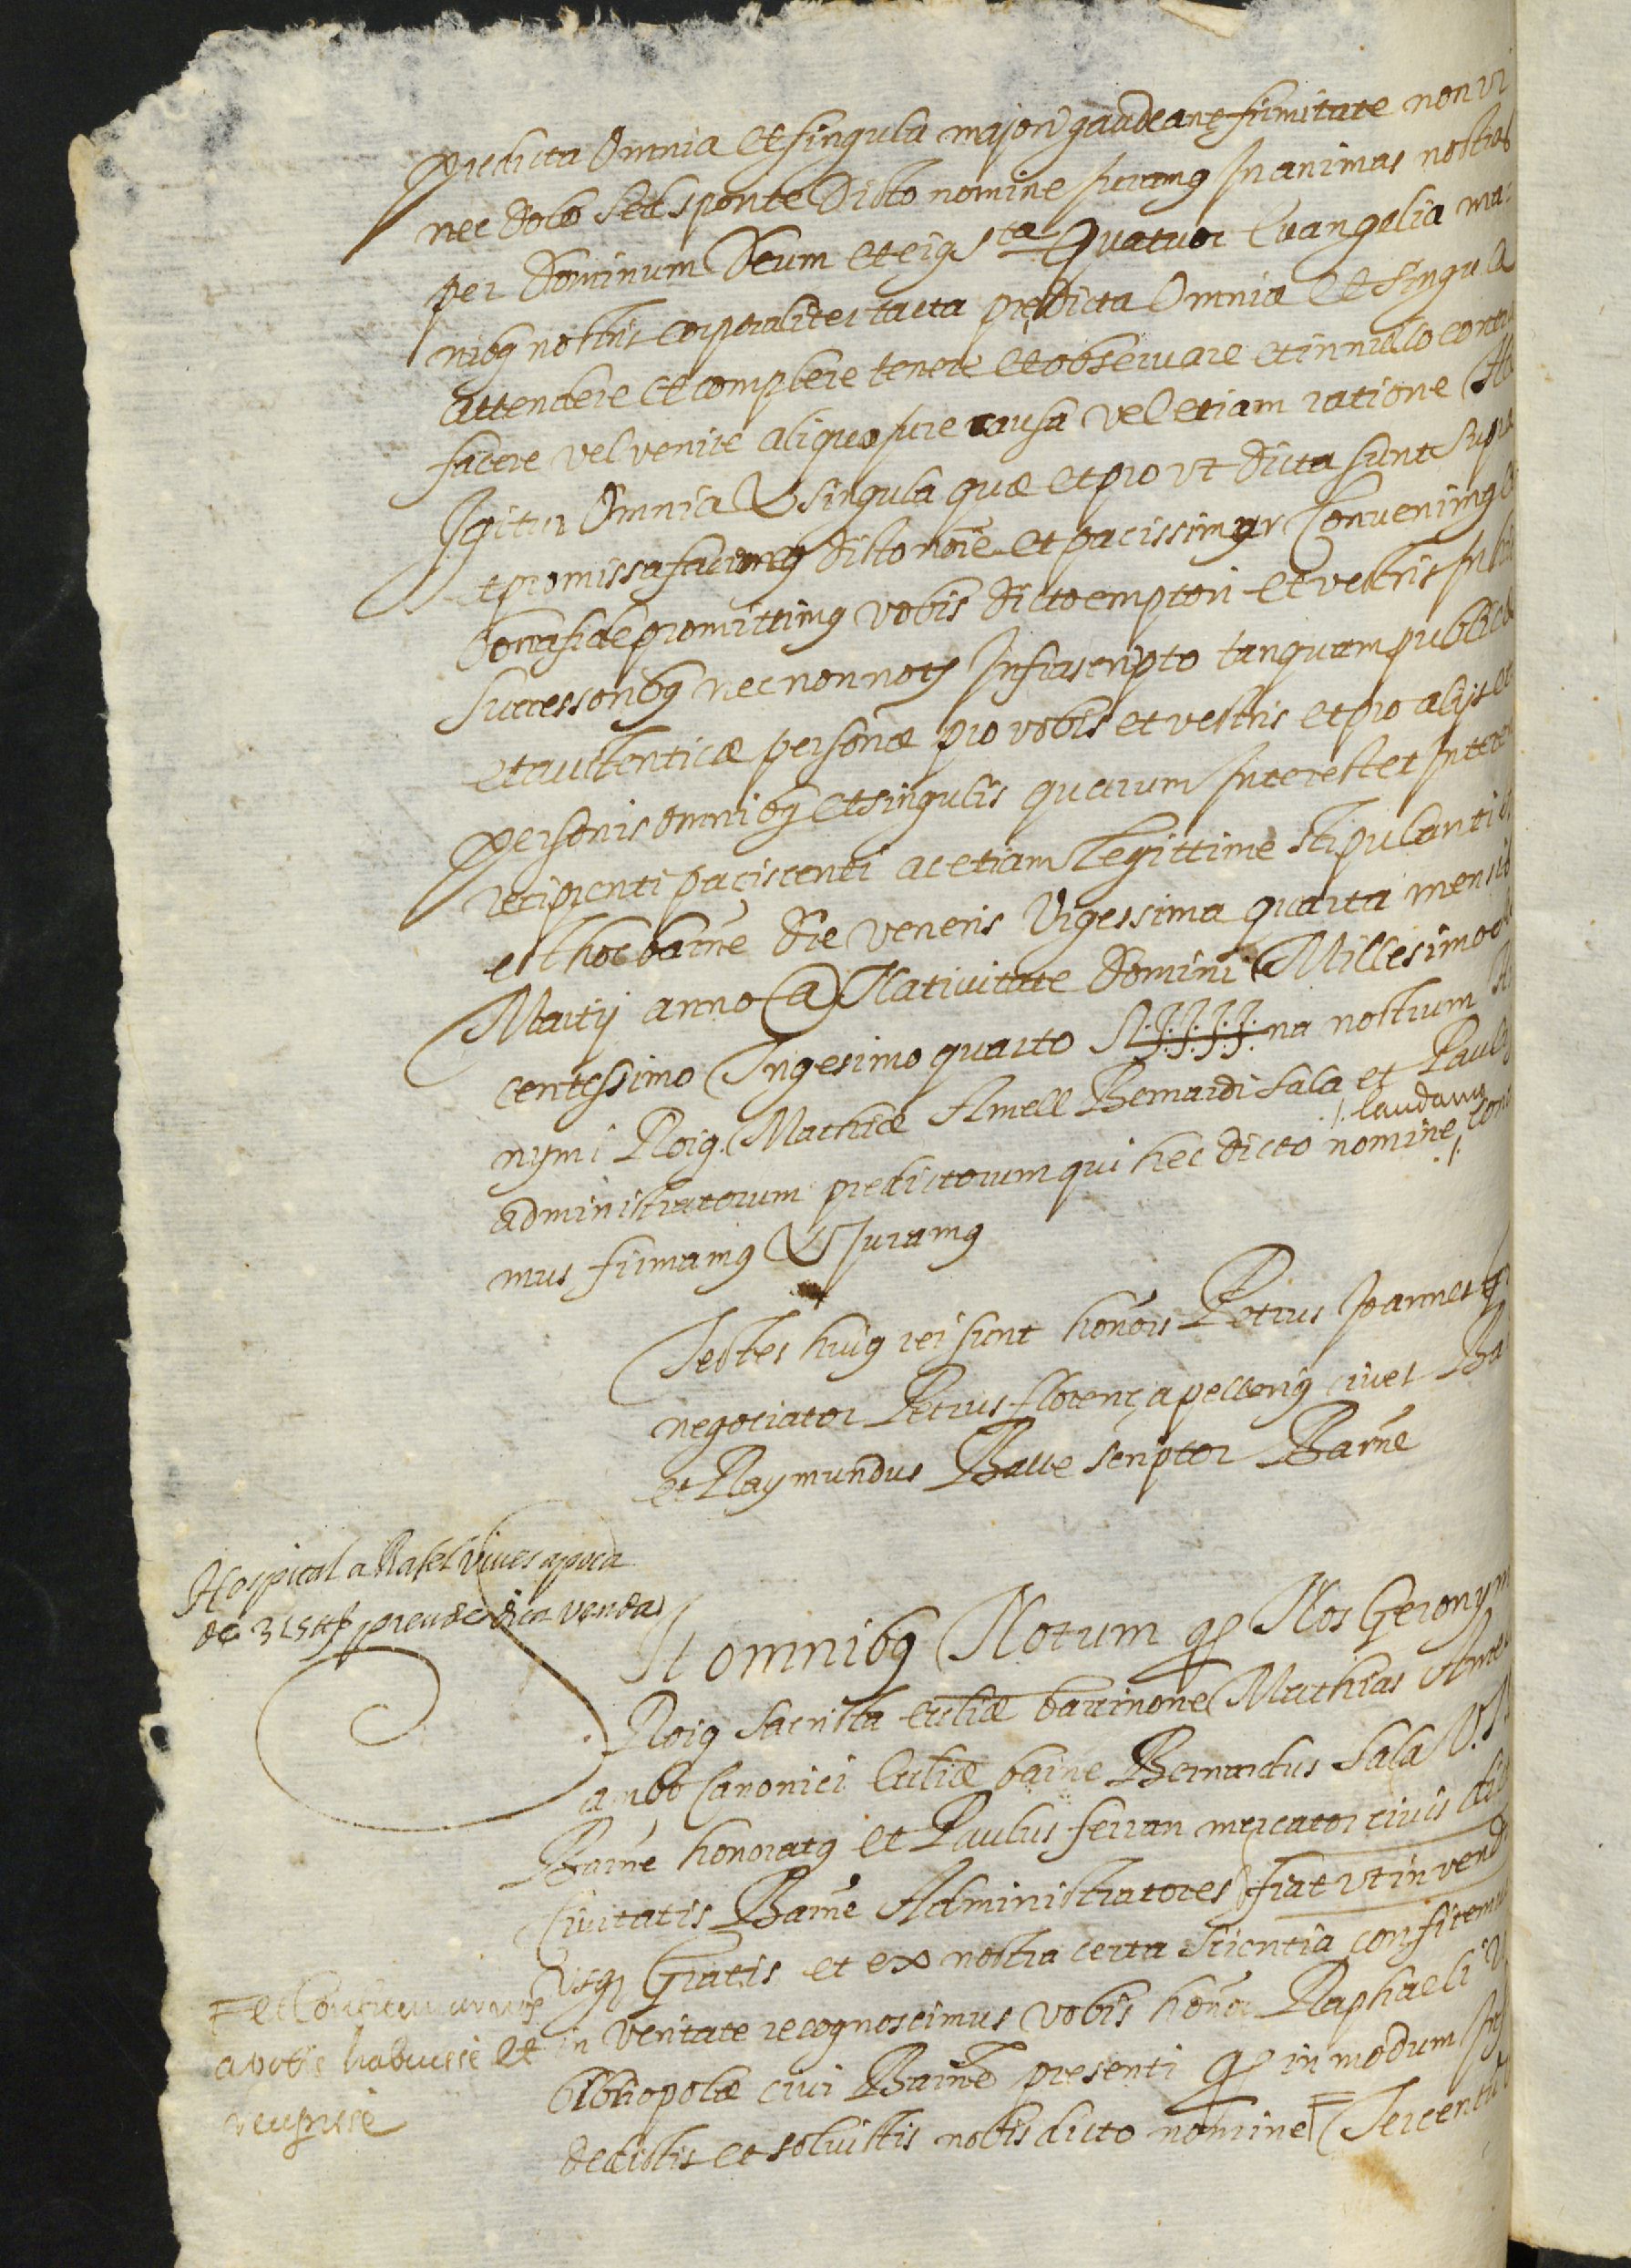 predicta Omnia et singula majori gaudeant firmitate non vi
nec dolo sed sponte Dicto nomine juramꝰ In animas nostras
per Dominum Deum et eiꝰ sta Quatuor Evangelia ma:
nibꝰ nostris corporaliter tacta predicta Omnia et singula
attendere et complere tenere et observare et in nullo contra
facere vel venire aliquo jure causa vel etiam ratione Hæ
Igitur Omnia & singula quæ et pro ut dicta sunt supra
et promissa facimꝰ dicto noīe et paciscimur Convenimꝰ et
bona fide promittimꝰ vobis dicto emptori et vestris In
successoribꝰ nec non notꝰ Infrascripto tanquam publicæ
et auctenticæ personæ pro vobis et vestris et pro alijs et
personis omnibꝰ et singulis quarum Interest et Intererit
recipienti paciscenti ac etiam legittime stipulanti
est hoc barne die veneris Vigessima quarta mensis
Martij anno a Nativitate Domini Millesimo
centessimo Trigesimo quarto S.J.J.J.J.na nostrum
nymi Roig Mathiæ Amell Bernardi Sala et Pauli
administratorum predictorum qui hec dicto nomine ./. laudamꝰ ./.
mus firmamꝰ & Juramꝰ
Testes huiꝰ rei sunt honōis Petrus Joannes
negociator Petrus florença pellerꝰ cives
et Raymundus Batle scriptor Barne
Hospital a Rafel Vives apoca
de 315 ₶ preu de dita venda
Sit omnibꝰ Notum qꝫ Nos Gerony
Roig Sacrista eccliæ barcinone Mathias Amell
ambo Canonici Eccliæ barne Bernardus Sala
Barne honoratꝰ et Paulus ferran mercator civis
Civitatis Barne Administratores fiat ut in vend
Usqꝫ Gratis et ex nostra certa scientia confitemur
et Confitemur nos
a vobis habuisse et
recepisse
in veritate recognoscimus vobis honōr Raphaeli
bibliopolæ civi Barne presenti qꝫ in modum
dedistis et solvistis nobis dicto nomine Tercentu